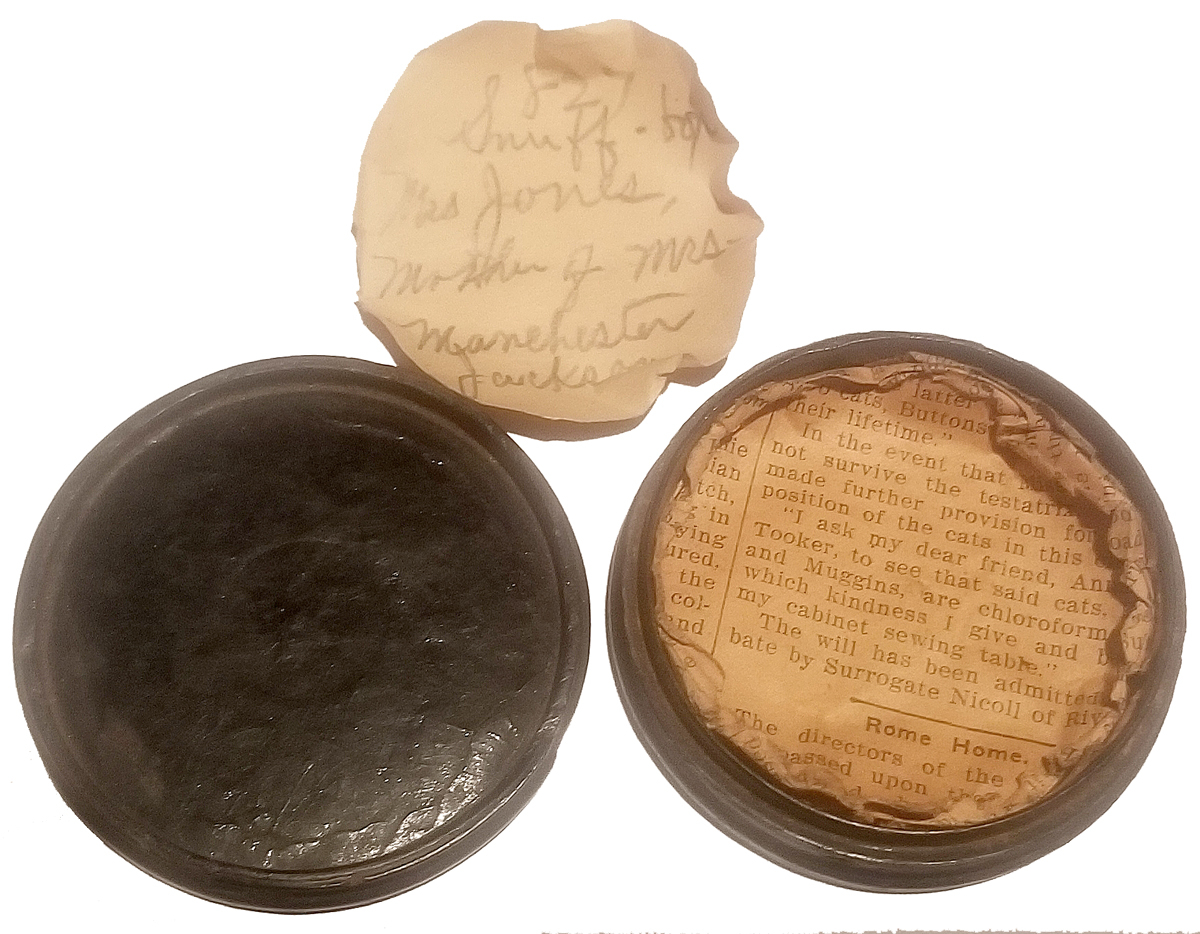 8-27
Snuff-box
Mrs Jones,
Mother of Mrs-
Manchester
Jackson
latter
cats, Buttons
their lifetime."
In the event that
not survive the testatrix
made further provision for
position of the cats in this
"I ask my dear friend, Ann
Tooker, to see that said cats,
and Muggins, are chloroform
which kindness I give and b
my cabinet sewing table."
The will has been admitted
bate by Surrogate Nicoll of Riv
Rome Home.
The directors of the
passed upon the
ian
tch,
in
ying
ured,
the
col-
and